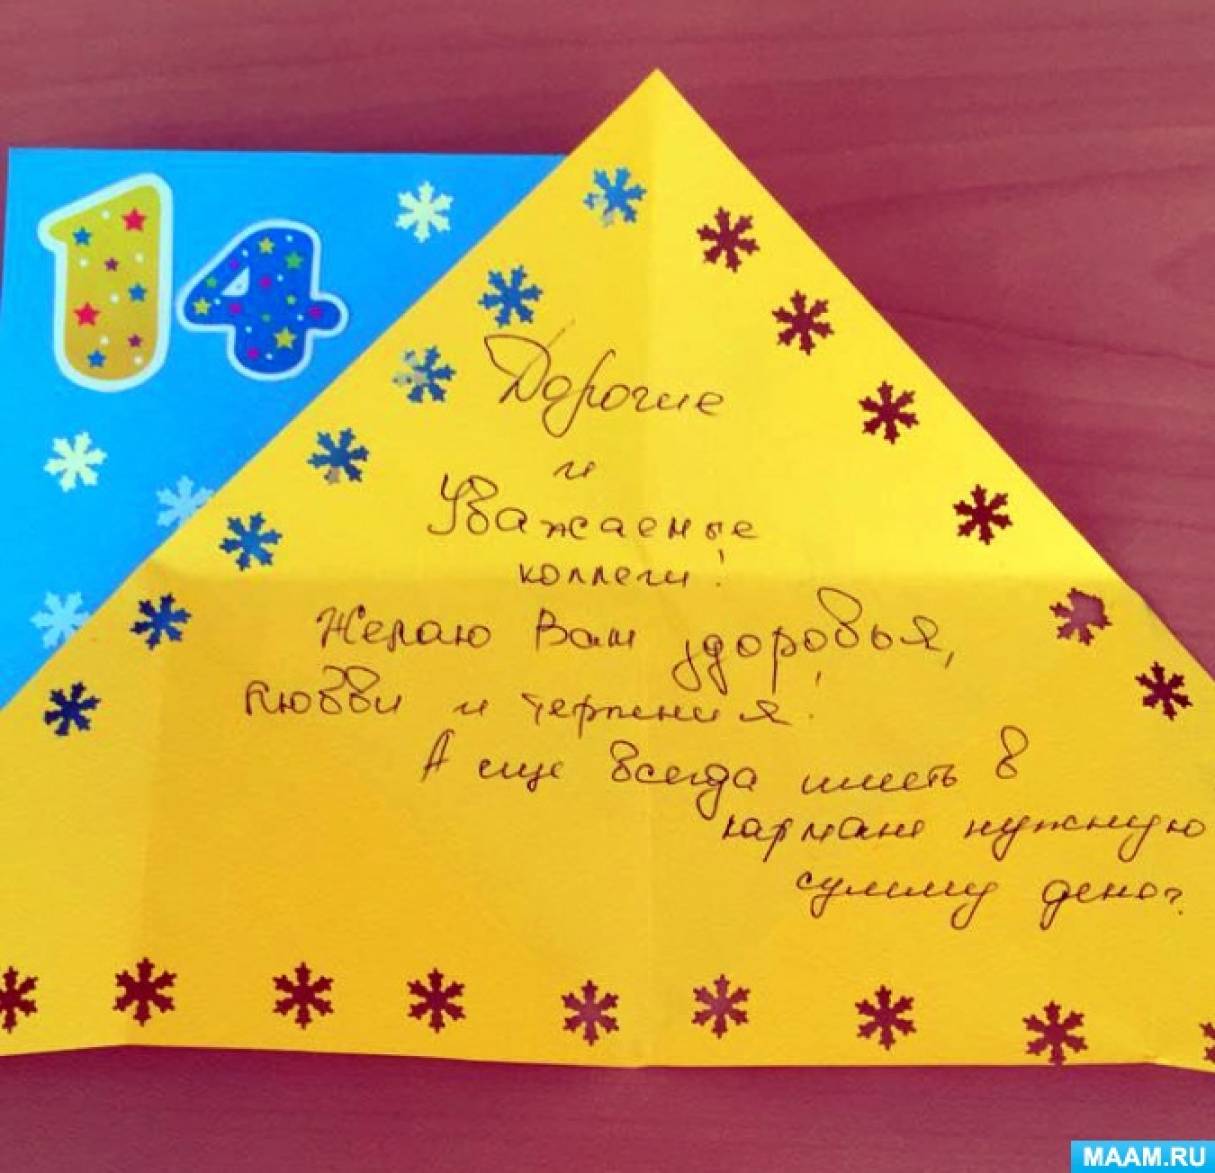 14
Дорогие
и
Уважаемые
коллеги!
Желаю Вам здоровья,
любви и терпения!
А еще всегда иметь в
кармане нужную
сумму денег.
MAAM.RU